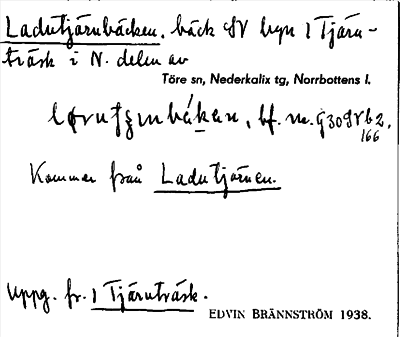 Ladutjärnbäcken, bäck SV byn 1 Tjärn-
träsk i N. delen av
Töre sn, Nederkalix tg, Norrbottens l.
bf. m.
166
Kommer från Ladutjärnen.
Uppg. fr. 1 Tjärnträsk.
EDVIN BRÄNNSTRÖM 1938.